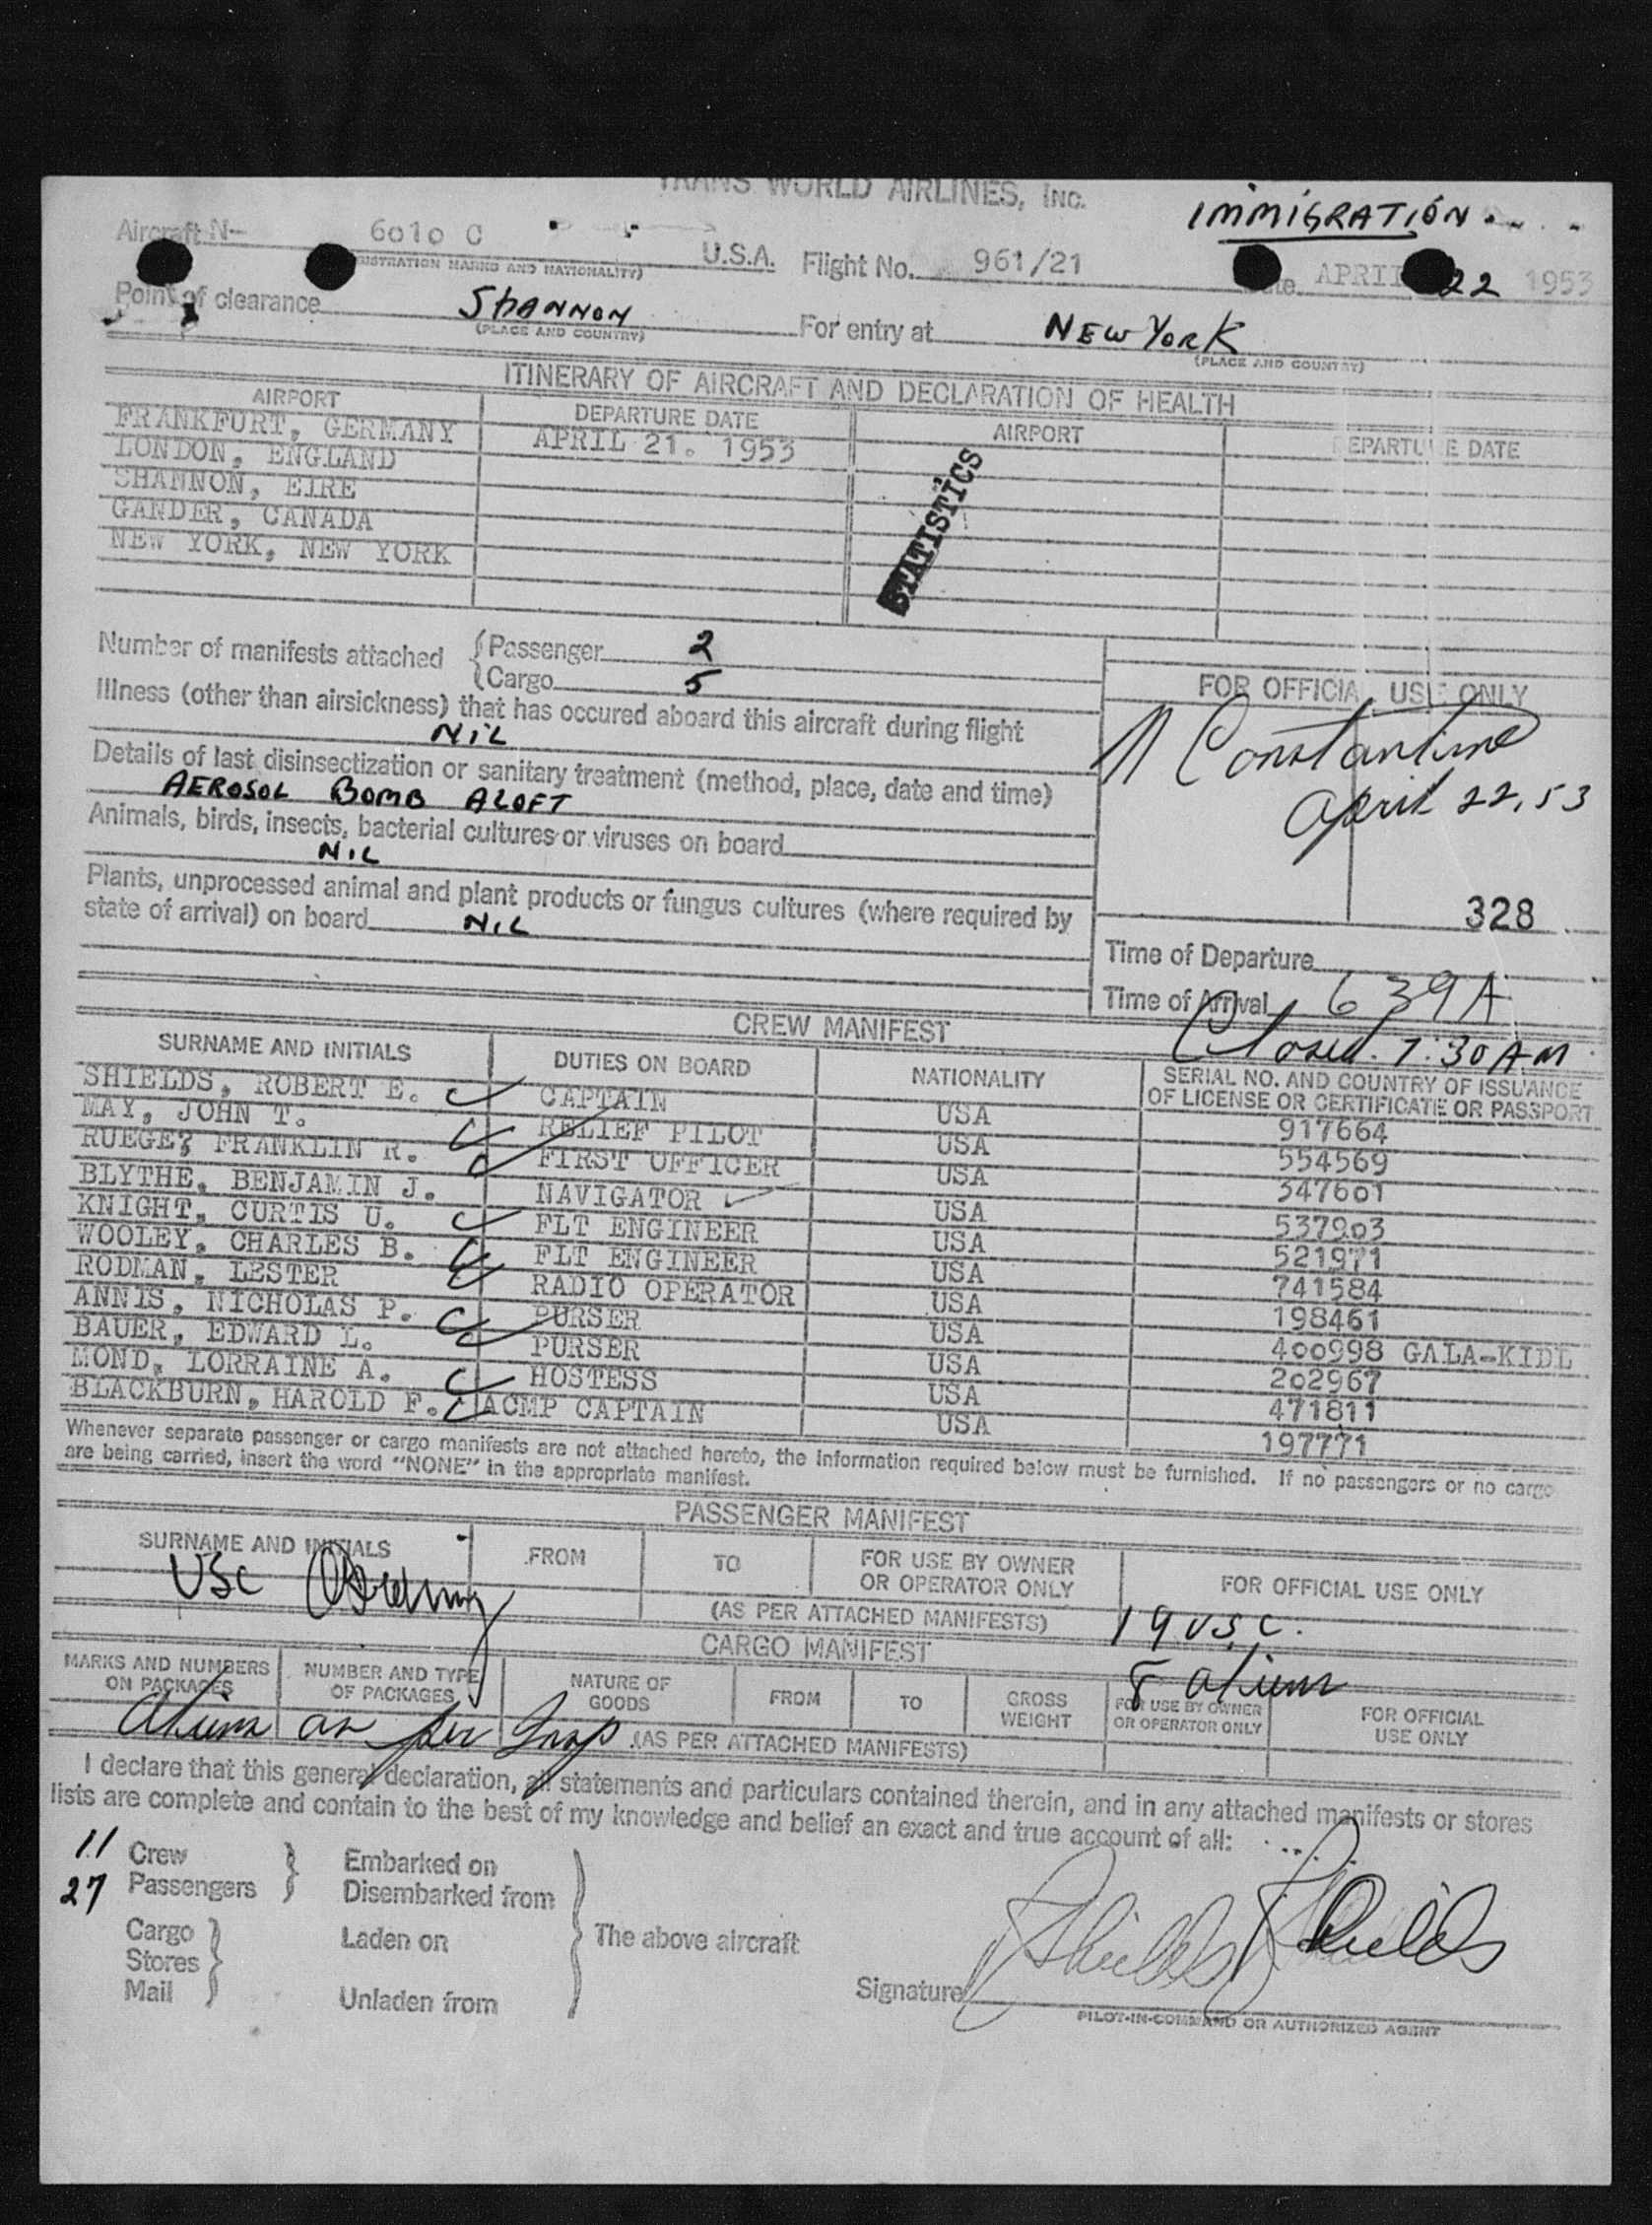 TRANS WORLD AIRLINES, INC.
IMMIGRATION
Aircraft N- 6010 C U.S.A. Flight No. 961/21 Date APRIL 22 1953
(REGISTRATION MARKS AND NATIONALITY)
Point of clearance SHANNON For entry at NEW YORK
(PLACE AND COUNTRY) (PLACE AND COUNTRY)
ITINERARY OF AIRCRAFT AND DECLARATION OF HEALTH
AIRPORT DEPARTURE DATE AIRPORT DEPARTURE DATE
FRANKFURT, GERMANY APRIL 21. 1953
LONDON, ENGLAND
SHANNON, EIRE
GANDER, CANADA
NEW YORK, NEW YORK
STATISTICS
Number of manifests attached Passenger 2
Cargo 5
Illness (other than airsickness) that has occured aboard this aircraft during flight
NIL
Details of last disinsectization or sanitary treatment (method, place, date and time)
AEROSOL BOMB ALOFT
Animals, birds, insects, bacterial cultures or viruses on board
NIL
Plants, unprocessed animal and plant products or fungus cultures (where required by
state of arrival) on board NIL
FOR OFFICIAL USE ONLY
N Constantine
April 22, 53
328
Time of Departure
Time of Arrival 639A
Closed. 7:30 AM
CREW MANIFEST
SURNAME AND INITIALS DUTIES ON BOARD NATIONALITY SERIAL NO. AND COUNTRY OF ISSUANCE
OF LICENSE OR CERTIFICATE OR PASSPORT
SHIELDS, ROBERT E. CAPTAIN USA 917664
MAY, JOHN T. RELIEF PILOT USA 554569
RUEGE, FRANKLIN R. FIRST OFFICER USA 347601
BLYTHE, BENJAMIN J. NAVIGATOR USA 537903
KNIGHT, CURTIS U. FLT ENGINEER USA 521971
WOOLEY, CHARLES B. FLT ENGINEER USA 741584
RODMAN, LESTER RADIO OPERATOR USA 198461
ANNIS, NICHOLAS P. PURSER USA 400998 GALA-KIDL
BAUER, EDWARD L. PURSER USA 202967
MOND, LORRAINE A. HOSTESS USA 471811
BLACKBURN, HAROLD F. ACMP CAPTAIN USA 197771
Whenever separate passenger or cargo manifests are not attached hereto, the information required below must be furnished. If no passengers or no cargo
are being carried, insert the word "NONE" in the appropriate manifest.
PASSENGER MANIFEST
SURNAME AND INITIALS FROM TO FOR USE BY OWNER FOR OFFICIAL USE ONLY
OR OPERATOR ONLY
USC
(AS PER ATTACHED MANIFESTS) 19 USC.
CARGO MANIFEST
8 aliens
MARKS AND NUMBERS NUMBER AND TYPE NATURE OF FROM TO GROSS FOR USE BY OWNER FOR OFFICIAL
ON PACKAGES OF PACKAGES GOODS WEIGHT OR OPERATOR ONLY USE ONLY
Aliens as per Insp (AS PER ATTACHED MANIFESTS)
I declare that this general declaration, all statements and particulars contained therein, and in any attached manifests or stores
lists are complete and contain to the best of my knowledge and belief an exact and true account of all:
11 Crew Embarked on
27 Passengers Disembarked from
Cargo Laden on The above aircraft
Stores
Mail Unladen from
Signature Shields Shields
PILOT-IN-COMMAND OR AUTHORIZED AGENT